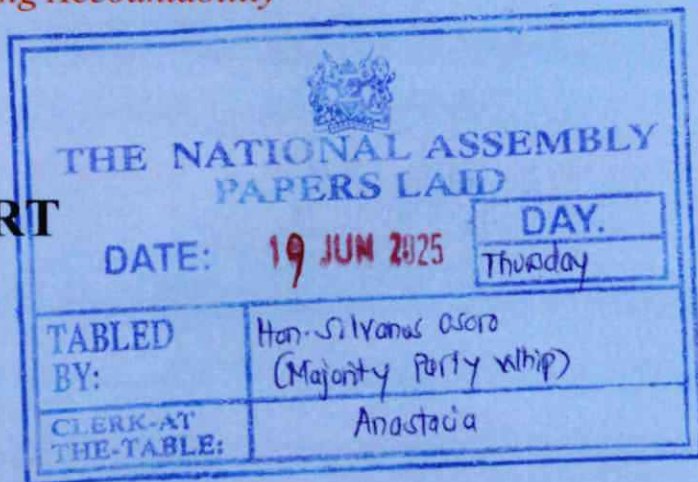 ng Accountability
THE NATIONAL ASSEMBLY
PAPERS LAID
RT
DATE: 19 JUN 2025
DAY.
Thursday
TABLED BY:
Hon. Silvanus Osoro
(Majority Party Whip)
CLERK-AT THE-TABLE:
Anastacia